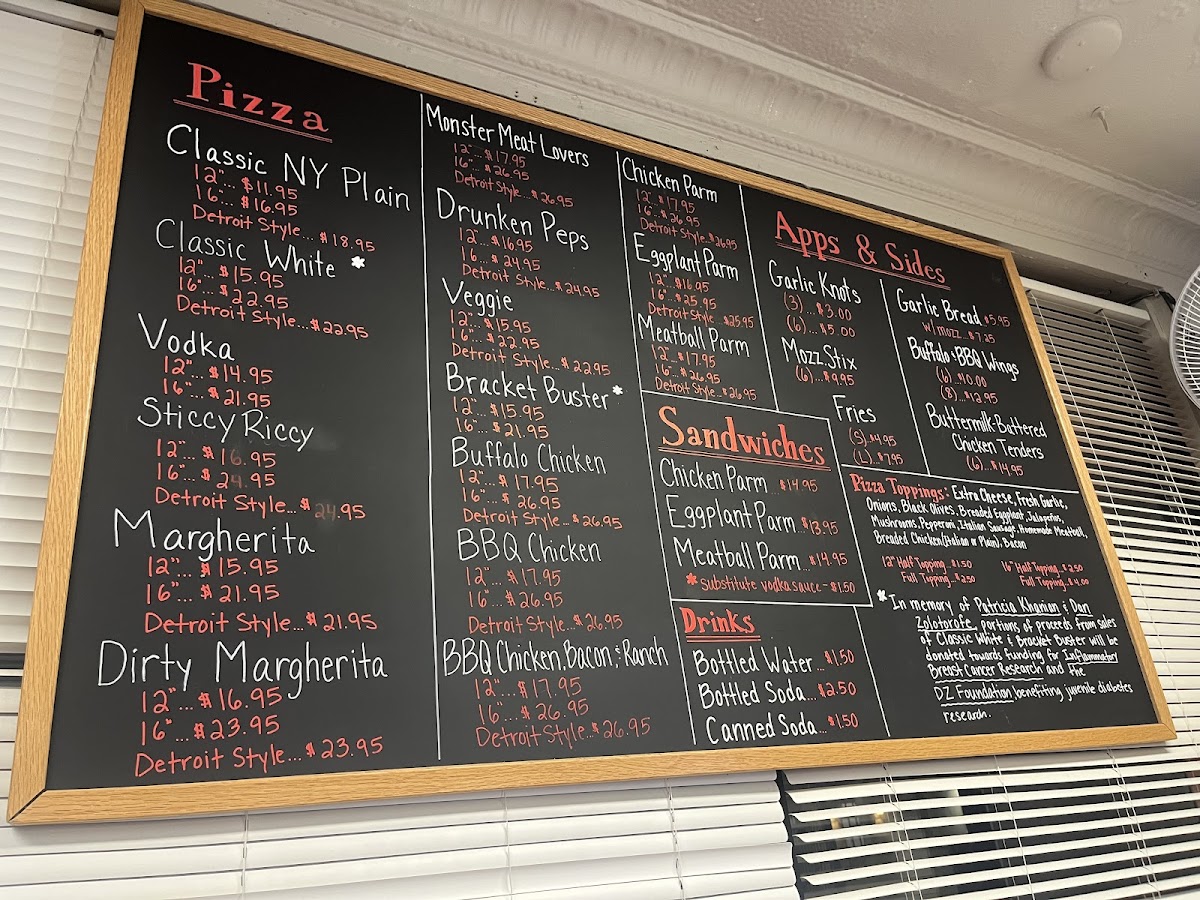 Pizza
Classic NY Plain
12"... $11.95
16"... $16.95
Detroit Style... $18.95
Classic White *
12"... $15.95
16"... $22.95
Detroit Style... $22.95
Vodka
12"... $14.95
16"... $21.95
Sticcy Riccy
12"... $16.95
16"... $24.95
Detroit Style... $24.95
Margherita
12"... $15.95
16"... $21.95
Detroit Style... $21.95
Dirty Margherita
12"... $16.95
16"... $23.95
Detroit Style... $23.95
Monster Meat Lovers
12"... $17.95
16"... $26.95
Detroit Style... $26.95
Drunken Peps
12"... $16.95
16"... $24.95
Detroit Style... $24.95
Veggie
12"... $15.95
16"... $22.95
Detroit Style... $22.95
Bracket Buster *
12"... $15.95
16"... $21.95
Buffalo Chicken
12"... $17.95
16"... $26.95
Detroit Style... $26.95
BBQ Chicken
12"... $17.95
16"... $26.95
Detroit Style... $26.95
BBQ Chicken, Bacon, & Ranch
12"... $17.95
16"... $26.95
Detroit Style... $26.95
Chicken Parm
12"... $17.95
16"... $26.95
Detroit Style... $26.95
Eggplant Parm
12"... $16.95
16"... $25.95
Detroit Style... $25.95
Meatball Parm
12"... $17.95
16"... $26.95
Detroit Style... $26.95
Sandwiches
Chicken Parm... $14.95
Eggplant Parm... $13.95
Meatball Parm... $14.95
* substitute vodka sauce - $1.50
Drinks
Bottled Water... $1.50
Bottled Soda... $2.50
Canned Soda... $1.50
Apps & Sides
Garlic Knots
(3)... $3.00
(6)... $5.00
Mozz Stix
(6)... $9.95
Fries
(S) $4.95
(L)... $7.95
Garlic Bread $5.95
w/ mozz... $7.25
Buffalo & BBQ Wings
(6)... $10.00
(8)... $12.95
Buttermilk-Battered
Chicken Tenders
(6)... $14.95
Pizza Toppings: Extra Cheese, Fresh Garlic,
Onions, Black Olives, Breaded Eggplant, Jalapeños,
Mushrooms, Pepperoni, Italian Sausage, Homemade Meatball,
Breaded Chicken (Italian or Plain), Bacon
12" Half Topping... $1.50
Full Topping... $2.50
16" Half Topping... $2.50
Full Topping... $4.00
* In memory of Patricia Khanian & Dan
Zolotorofe, portions of proceeds from sales
of Classic White & Bracket Buster will be
donated towards funding for Inflammatory
Breast Cancer Research and the
DZ Foundation benefiting juvenile diabetes
research.